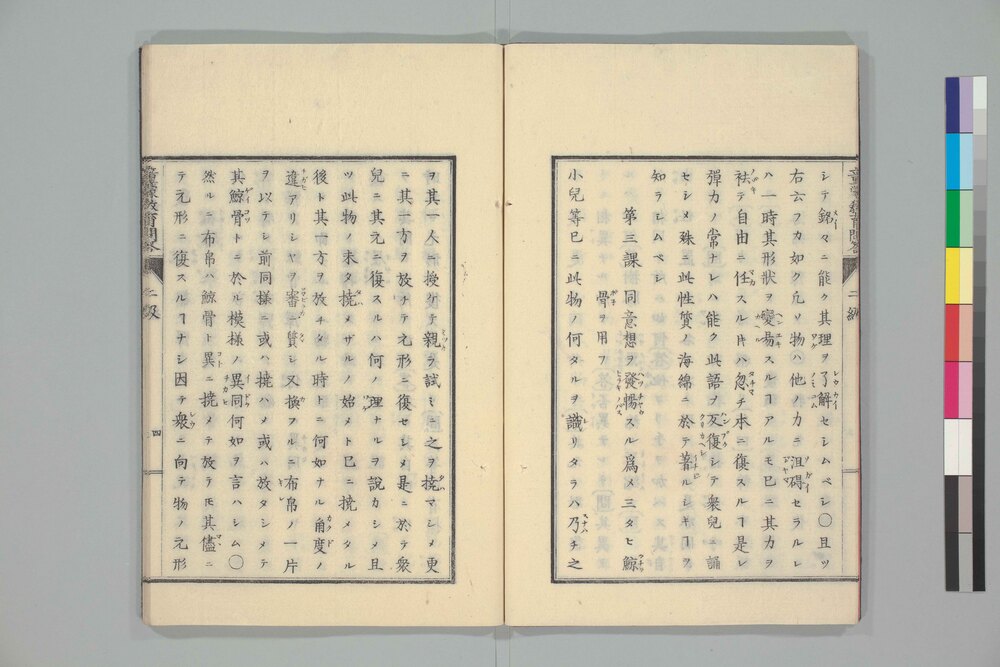 シテ銘々ニ能ク其理ヲ了解セシムベシ〇且ツ
右云フカ如ク凡ソ物ハ他ノ力ニ沮碍セラルレ
ハ一時其形狀ヲ變易スルヿアルモ已ニ其力ヲ
袪テ自由ニ任スル時ハ忽チ本ニ復スルヿ是レ
彈力ノ常ナレハ能ク此語ヲ反復シテ衆兒ニ誦
セシメ殊ニ此性質ノ海綿ニ於テ著ルシキヿヲ
知ラシムベシ
第三課 同意想ヲ發暢スル爲メ三タヒ鯨
骨ヲ用フ
小兒等已ニ此物ノ何タルヲ識リタラハ乃チ之
ヲ其一人ニ授ケテ親ラ試ミニ之ヲ撓マシメ更
ニ其一方ヲ放チテ元形ニ復セシメ是ニ於テ衆
兒ニ其元ニ復スルハ何ノ理ナルヲ說カシメ且
ツ此物ノ未タ撓メザルノ始メト已ニ撓メタル
後ト其一方ヲ放チタル時トニ何如ナル角度ノ
違アリシヤヲ審ニ質シ又換フルニ布帛ノ一片
ヲ以テシ前同樣ニ或ハ撓ハメ或ハ放タシメテ
其鯨骨トニ於ル模樣ノ異同何如ヲ言ハシム〇
然ルニ布帛ハ鯨骨ト異ニ撓メテ放テモ其儘ニ
テ元形ニ復スルヿナシ因テ衆ニ向テ物ノ元形
二級
四